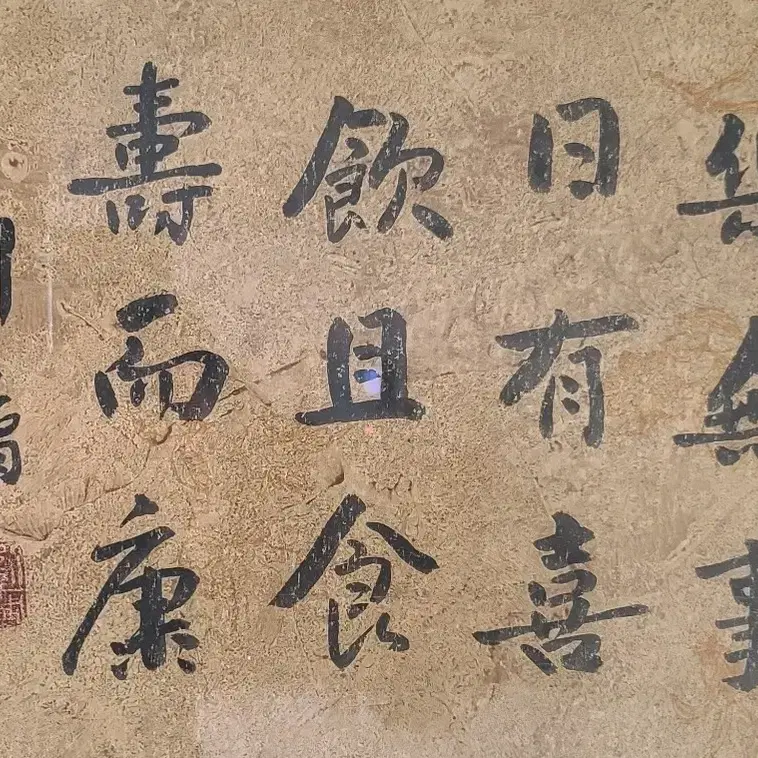 無無事
日有喜
飲且食
壽而康